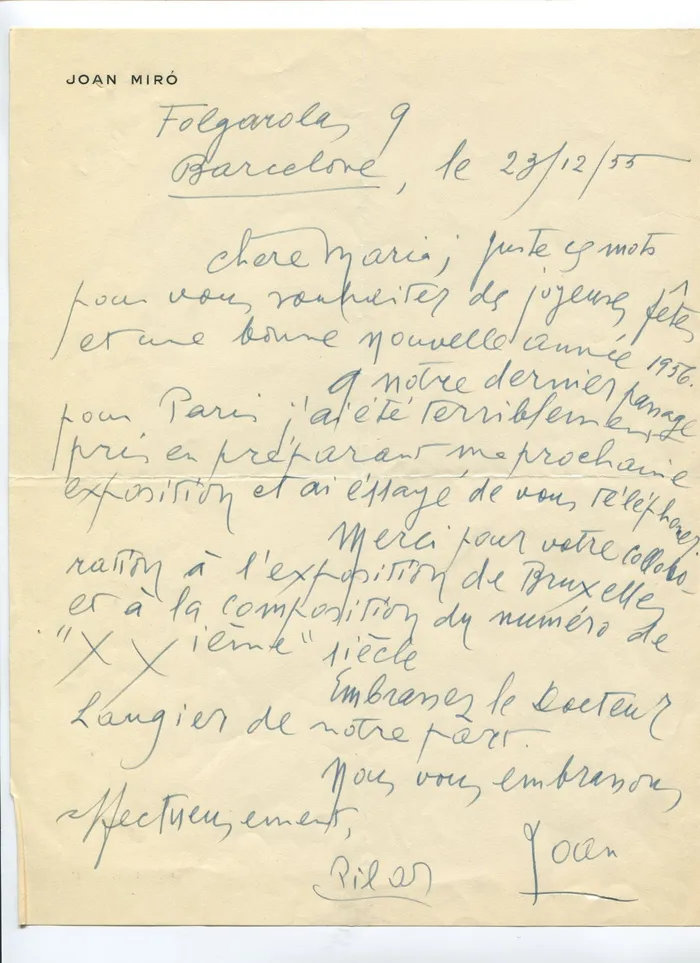 JOAN MIRÓ
Folgarolas, 9
Barcelone, le 23/12/55
Chere Maria, juste ces mots
pour vous souhaiter des joyeuses fêtes
et une bonne nouvelle année 1956.
A notre dernier passage
pour Paris j'ai été terriblement
pris en préparant ma prochaine
exposition et ai éssayé de vous téléphoner.
Merci pour votre collabo-
ration à l'exposition de Bruxelles
et à la composition du numéro de
"XXième" siècle
Embrassez le Docteur
Laugier de notre part.
Nous vous embrassons
affectueusement,
Pilar Joan